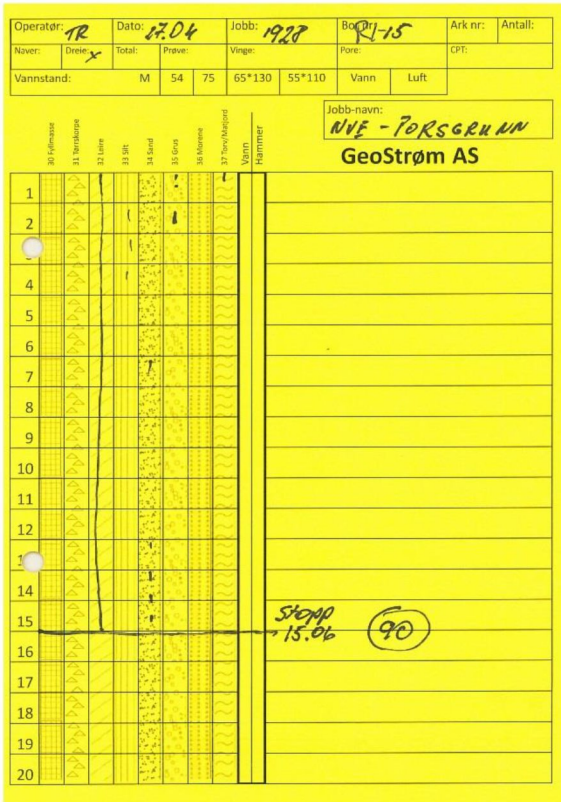 Operatør: TR Dato: 27.04 Jobb: 1928 Bor nr: RI-15 Ark nr: Antall:
Naver: Dreie: x Total: Prøve: Vinge: Pore: CPT:
Vannstand: M 54 75 65*130 55*110 Vann Luft
Jobb-navn:
NVE - PORSGRUNN
GeoStrøm AS
30 Fyllmasse
31 Tørrskorpe
32 Leire
33 Silt
34 Sand
35 Grus
36 Morene
37 Torv/Matjord
Vann
Hammer
1
2
4
5
6
7
8
9
10
11
12
14
15
Stopp
15.06 90
16
17
18
19
20